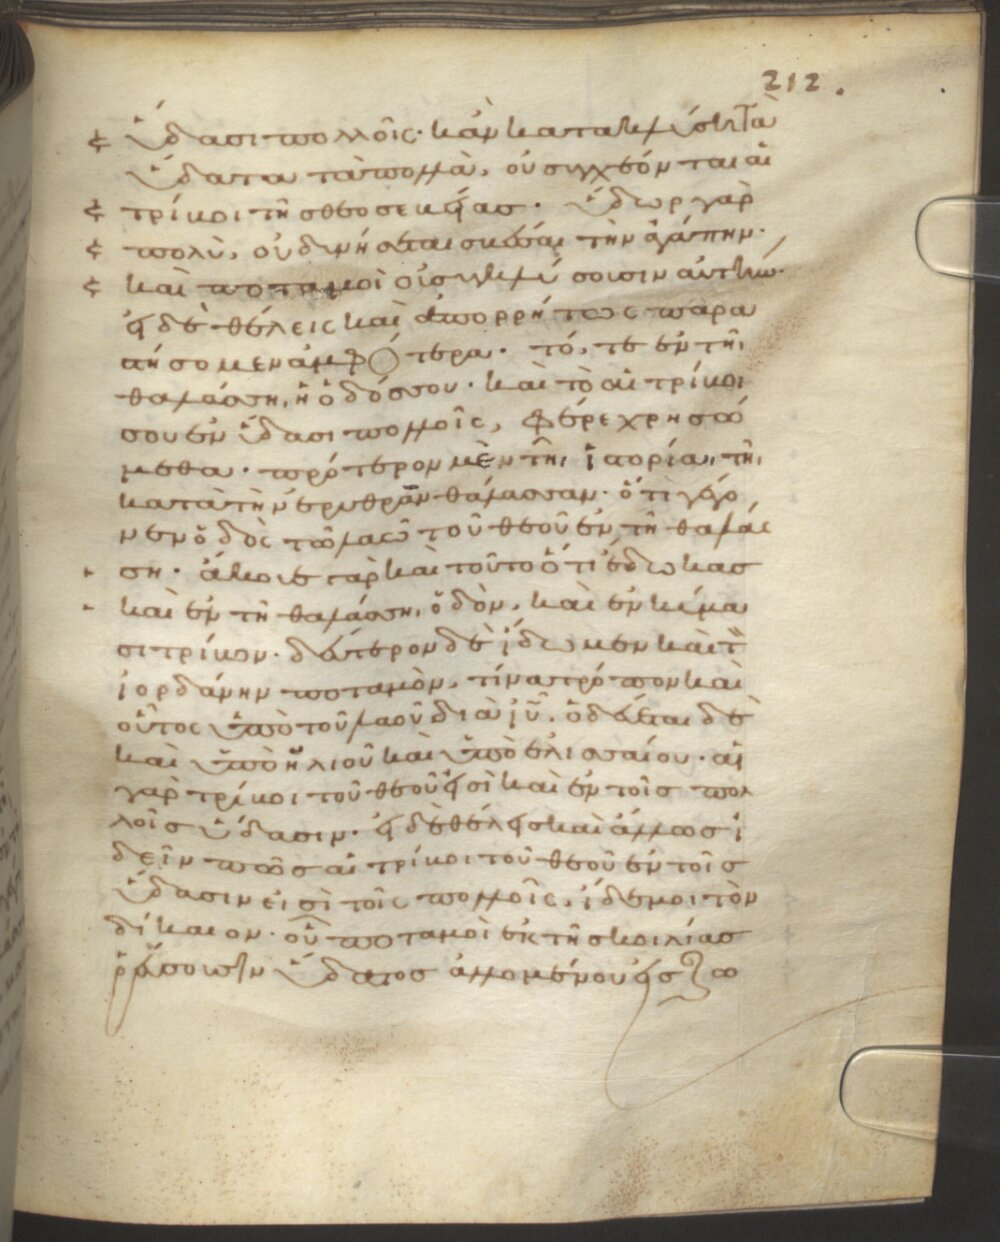 212.
ὕδασι πολλοῖς· κἂν κατακλύσῃ τὰ
ὕδατα τὰ πολλὰ, οὐ συγχέονται αἱ
τρίβοι τῆς θεοσεβείας· ὕδωρ γὰρ
πολὺ, οὐ δυνήσεται σβέσαι τὴν ἀγάπην·
καὶ ποταμοὶ οὐ συγκλύσουσιν αὐτήν·
εἰ δὲ θέλεις καὶ ἀπορρήτως παρα
στήσομεν ἀμφότερα· τό, τε ἐν τῇ
θαλάσσῃ, ἡ ὁδός σου· καὶ τὸ αἱ τρίβοι
σου ἐν ὕδασι πολλοῖς, φέρε χρησώ
μεθα· πρότερον μὲν τῇ ἱστορίᾳ, τῇ
κατὰ τὴν ἐρυθρὰν θάλασσαν· ὅτι γέγο
νεν ὁδὸς τῷ λαῷ τοῦ θεοῦ ἐν τῇ θαλάσ
σῃ· ἄκουε γὰρ καὶ τοῦτο ὅτι ἔδωκας
καὶ ἐν τῇ θαλάσσῃ, ὁδὸν, καὶ ἐν κύμα
σι τρίβον· δεύτερον δὲ ἴδωμεν καὶ τὸν
ἰορδάνην ποταμὸν, τίνα τρόπον καὶ
οὗτος ὑπὸ τοῦ λαοῦ διὰ ἰυ̅, ὁδεύεται δὲ
καὶ ὑπὸ ἡλιοῦ καὶ ὑπὸ ἐλισσαίου· αἱ
γὰρ τρίβοι τοῦ θεοῦ εἰσὶ καὶ ἐν τοῖς πολ
λοῖς ὕδασιν· εἰ δὲ θέλεις καὶ ἄλλως ἰ
δεῖν πῶς αἱ τρίβοι τοῦ θεοῦ ἐν τοῖς
ὕδασιν εἰσὶ τοῖς πολλοῖς, ἴδε μοι τὸν
δίκαιον· οὗ ποταμοὶ ἐκ τῆς κοιλίας
ῥεύσουσιν ὕδατος ἁλλομένου εἰς ζω